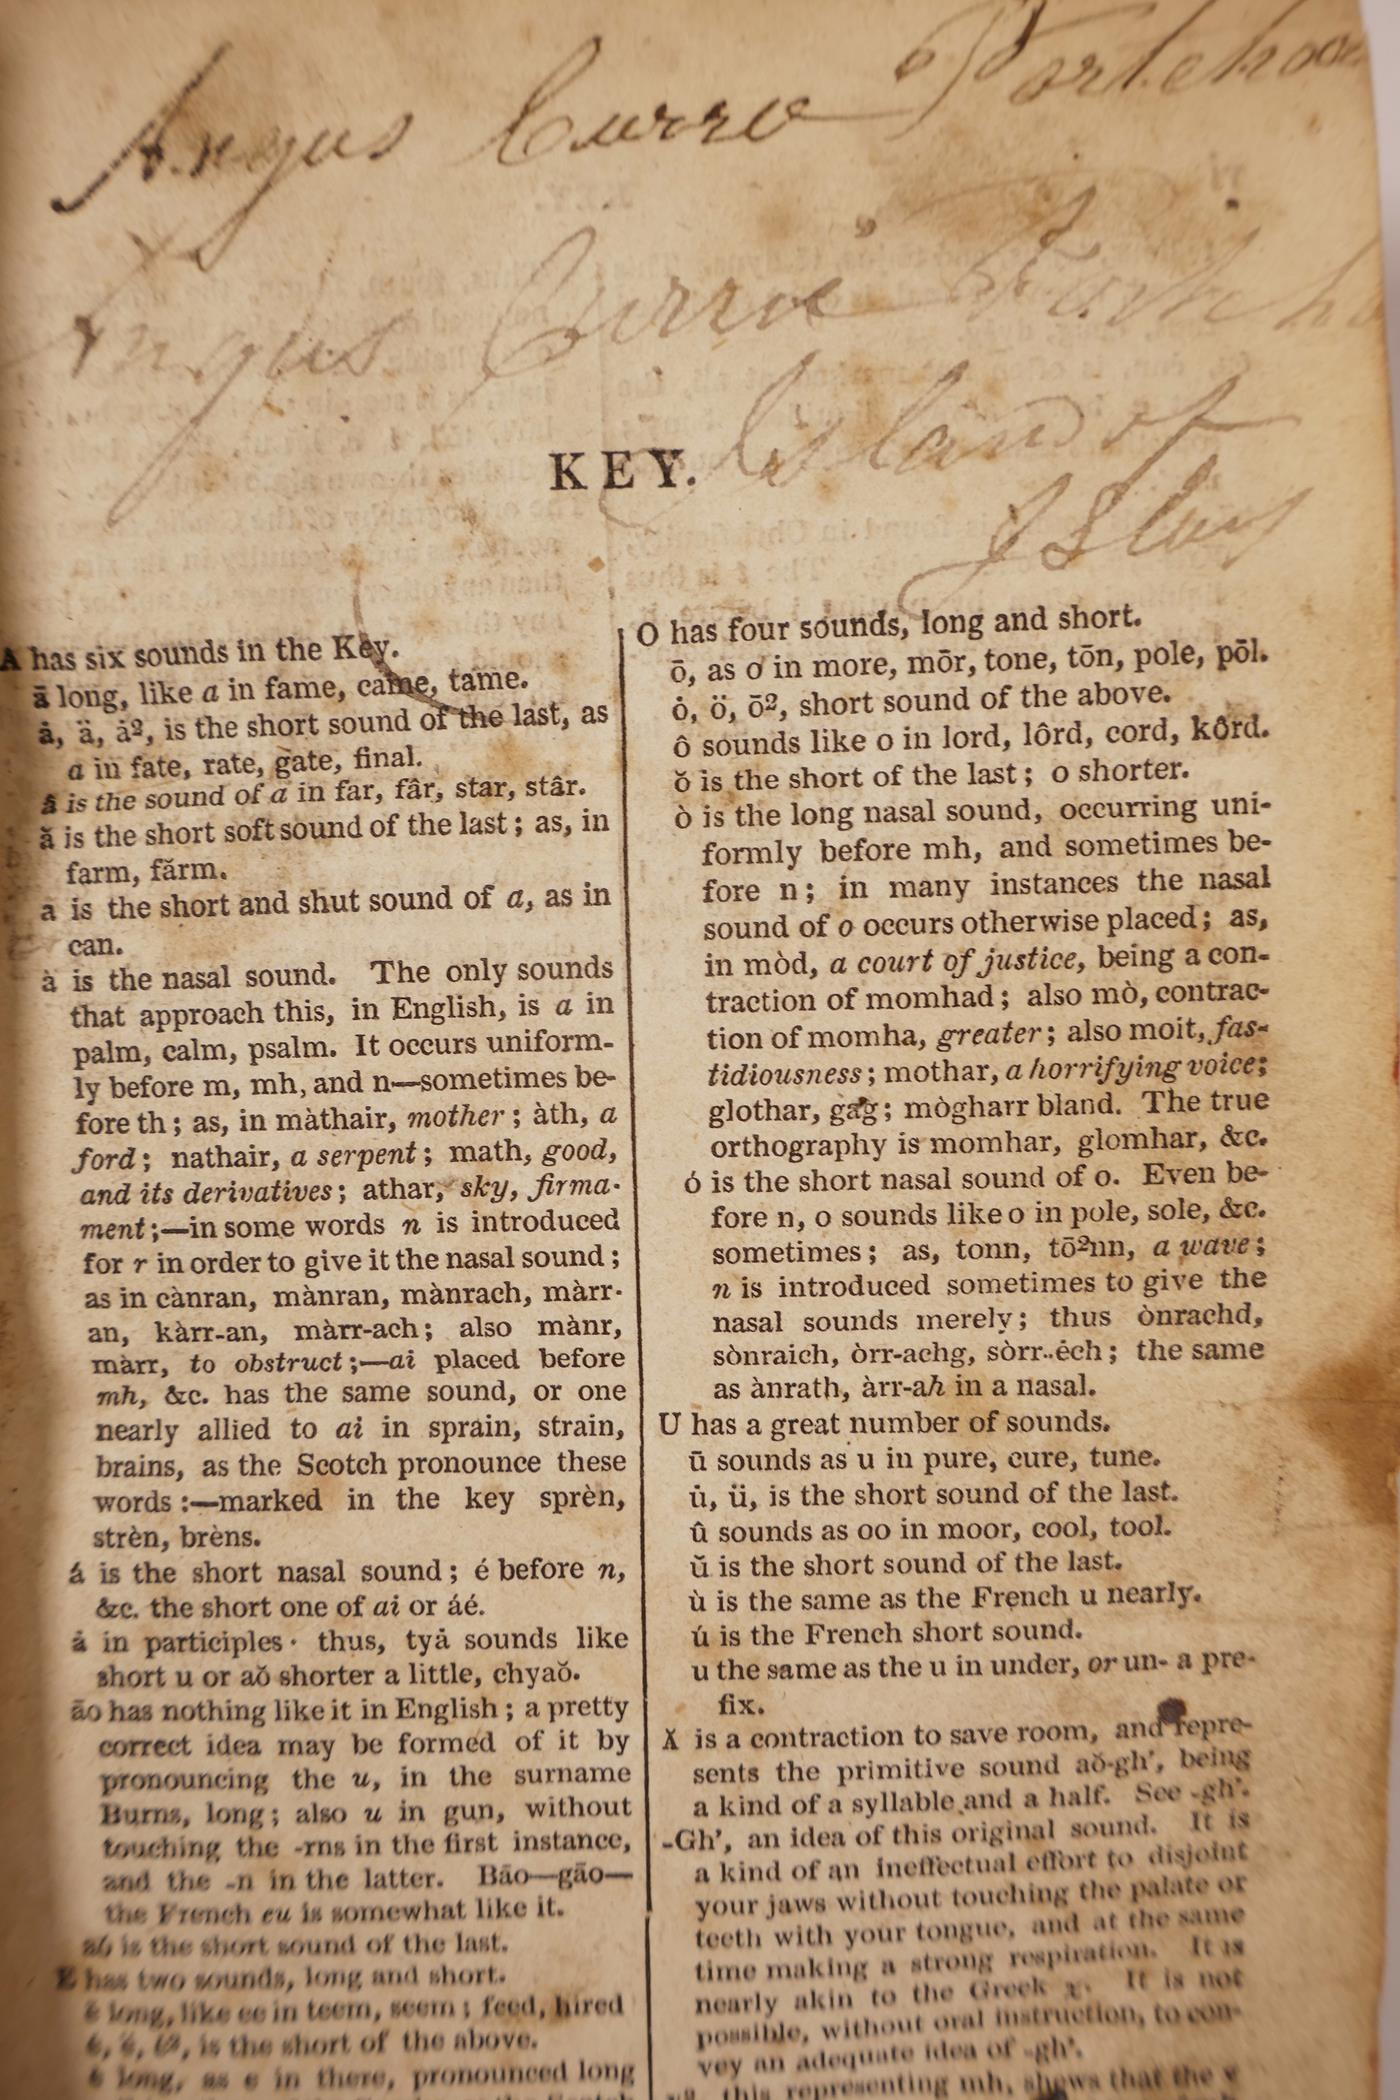 Angus Currie Portcha
Angus Currie Port
Island of
Islay
KEY.
A has six sounds in the Key.
ā long, like a in fame, came, tame.
ȧ, ä, ȧ², is the short sound of the last, as
a in fate, rate, gate, final.
â is the sound of a in far, fâr, star, stâr.
ă is the short soft sound of the last; as, in
farm, fărm.
a is the short and shut sound of a, as in
can.
à is the nasal sound. The only sounds
that approach this, in English, is a in
palm, calm, psalm. It occurs uniform-
ly before m, mh, and n—sometimes be-
fore th; as, in màthair, mother; àth, a
ford; nathair, a serpent; math, good,
and its derivatives; athar, sky, firma-
ment;—in some words n is introduced
for r in order to give it the nasal sound;
as in cànran, mànran, mànrach, màrr-
an, kàrr-an, màrr-ach; also mànr,
màrr, to obstruct;—ai placed before
mh, &c. has the same sound, or one
nearly allied to ai in sprain, strain,
brains, as the Scotch pronounce these
words:—marked in the key sprèn,
strèn, brèns.
á is the short nasal sound; é before n,
&c. the short one of ai or áé.
ȧ in participles· thus, tyȧ sounds like
short u or aŏ shorter a little, chyaŏ.
āo has nothing like it in English; a pretty
correct idea may be formed of it by
pronouncing the u, in the surname
Burns, long; also u in gun, without
touching the -rns in the first instance,
and the -n in the latter. Bāo—gāo—
the French eu is somewhat like it.
aŏ is the short sound of the last.
E has two sounds, long and short.
long, like ee in teem, seem; feed, hired
is the short of the above.
long, as e in there, pronounced long
O has four sounds, long and short.
ō, as o in more, mōr, tone, tōn, pole, pōl.
ȯ, ö, ō², short sound of the above.
ô sounds like o in lord, lôrd, cord, kôrd.
ŏ is the short of the last; o shorter.
ò is the long nasal sound, occurring uni-
formly before mh, and sometimes be-
fore n; in many instances the nasal
sound of o occurs otherwise placed; as,
in mòd, a court of justice, being a con-
traction of momhad; also mò, contrac-
tion of momha, greater; also moit, fas-
tidiousness; mothar, a horrifying voice;
glothar, gag; mògharr bland. The true
orthography is momhar, glomhar, &c.
ó is the short nasal sound of o. Even be-
fore n, o sounds like o in pole, sole, &c.
sometimes; as, tonn, tō²nn, a wave;
n is introduced sometimes to give the
nasal sounds merely; thus ònrachd,
sònraich, òrr-achg, sòrr-ėch; the same
as ànrath, àrr-ah in a nasal.
U has a great number of sounds.
ū sounds as u in pure, cure, tune.
u̇, ü, is the short sound of the last.
û sounds as oo in moor, cool, tool.
ŭ is the short sound of the last.
ù is the same as the French u nearly.
ú is the French short sound.
u the same as the u in under, or un- a pre-
fix.
X is a contraction to save room, and repre-
sents the primitive sound aŏ-gh’, being
a kind of a syllable and a half. See -gh’.
-Gh’, an idea of this original sound. It is
a kind of an ineffectual effort to disjoint
your jaws without touching the palate or
teeth with your tongue, and at the same
time making a strong respiration. It is
nearly akin to the Greek χ. It is not
possible, without oral instruction, to con-
vey an adequate idea of -gh’.
this representing mh, shows that the v